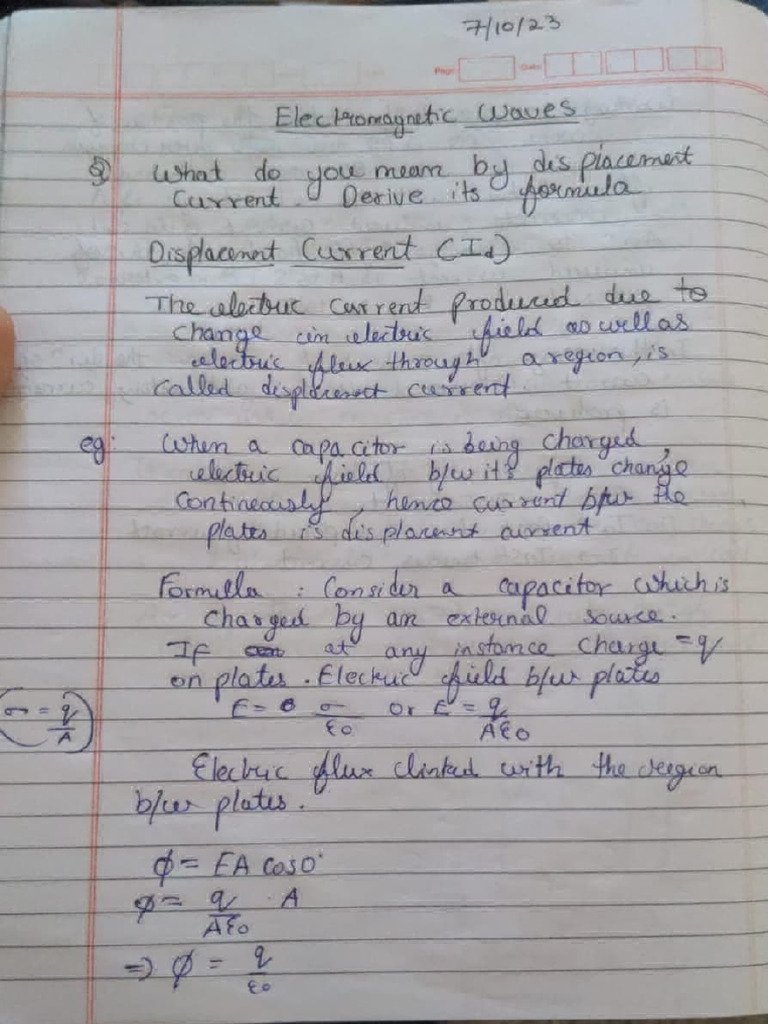 7/10/23
Page: Date:
Electromagnetic Waves
Q) What do you mean by displacement
current. Derive its formula
Displacement Current (Id)
The electric current produced due to
change in electric field as well as
electric flux through a region, is
called displacement current
eg: When a capacitor is being charged,
electric field b/w it's plates change
contineously, hence current b/w the
plates is displacement current
Formulla : Consider a capacitor which is
charged by an external source.
If at any instance charge = q
on plates. Electric field b/w plates
σ = q/A
E = σ/ε0 or E = q/Aε0
Electric flux linked with the region
b/w plates.
ϕ = EA cos0°
ϕ = q/Aε0 . A
=> ϕ = q/ε0